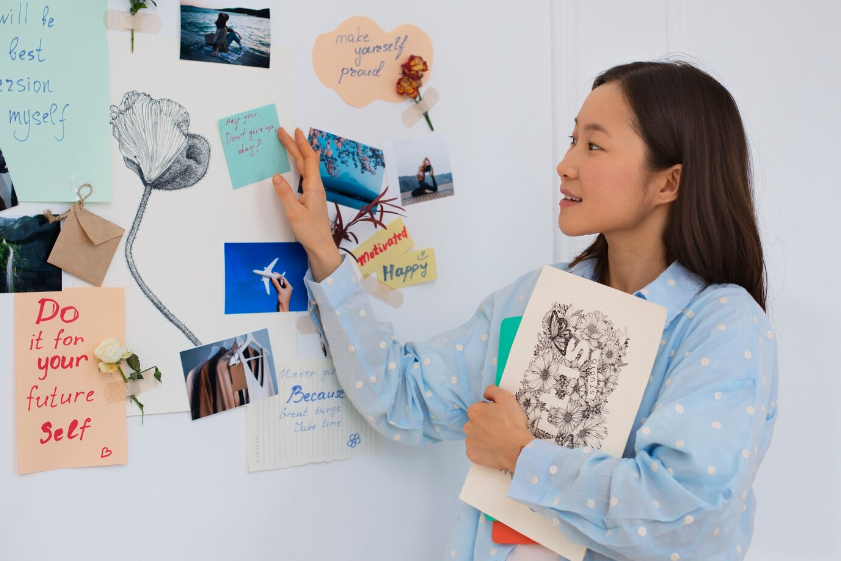 will be
best
ersion
myself
make
yourself
proud
Hey you.
Don't give up
okay?
Motivated
Happy
Do
it for
your
future
self
Never gi
Becaus
Great things
Take time